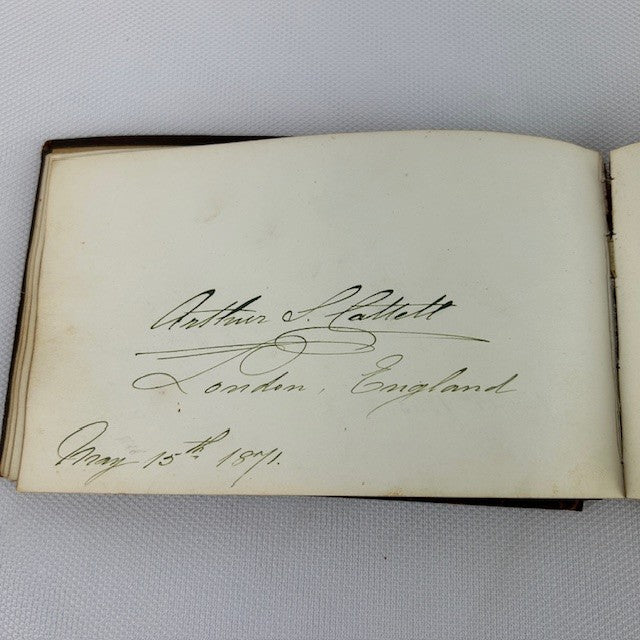 Arthur S. Cattell
London, England
May 15th 1871.